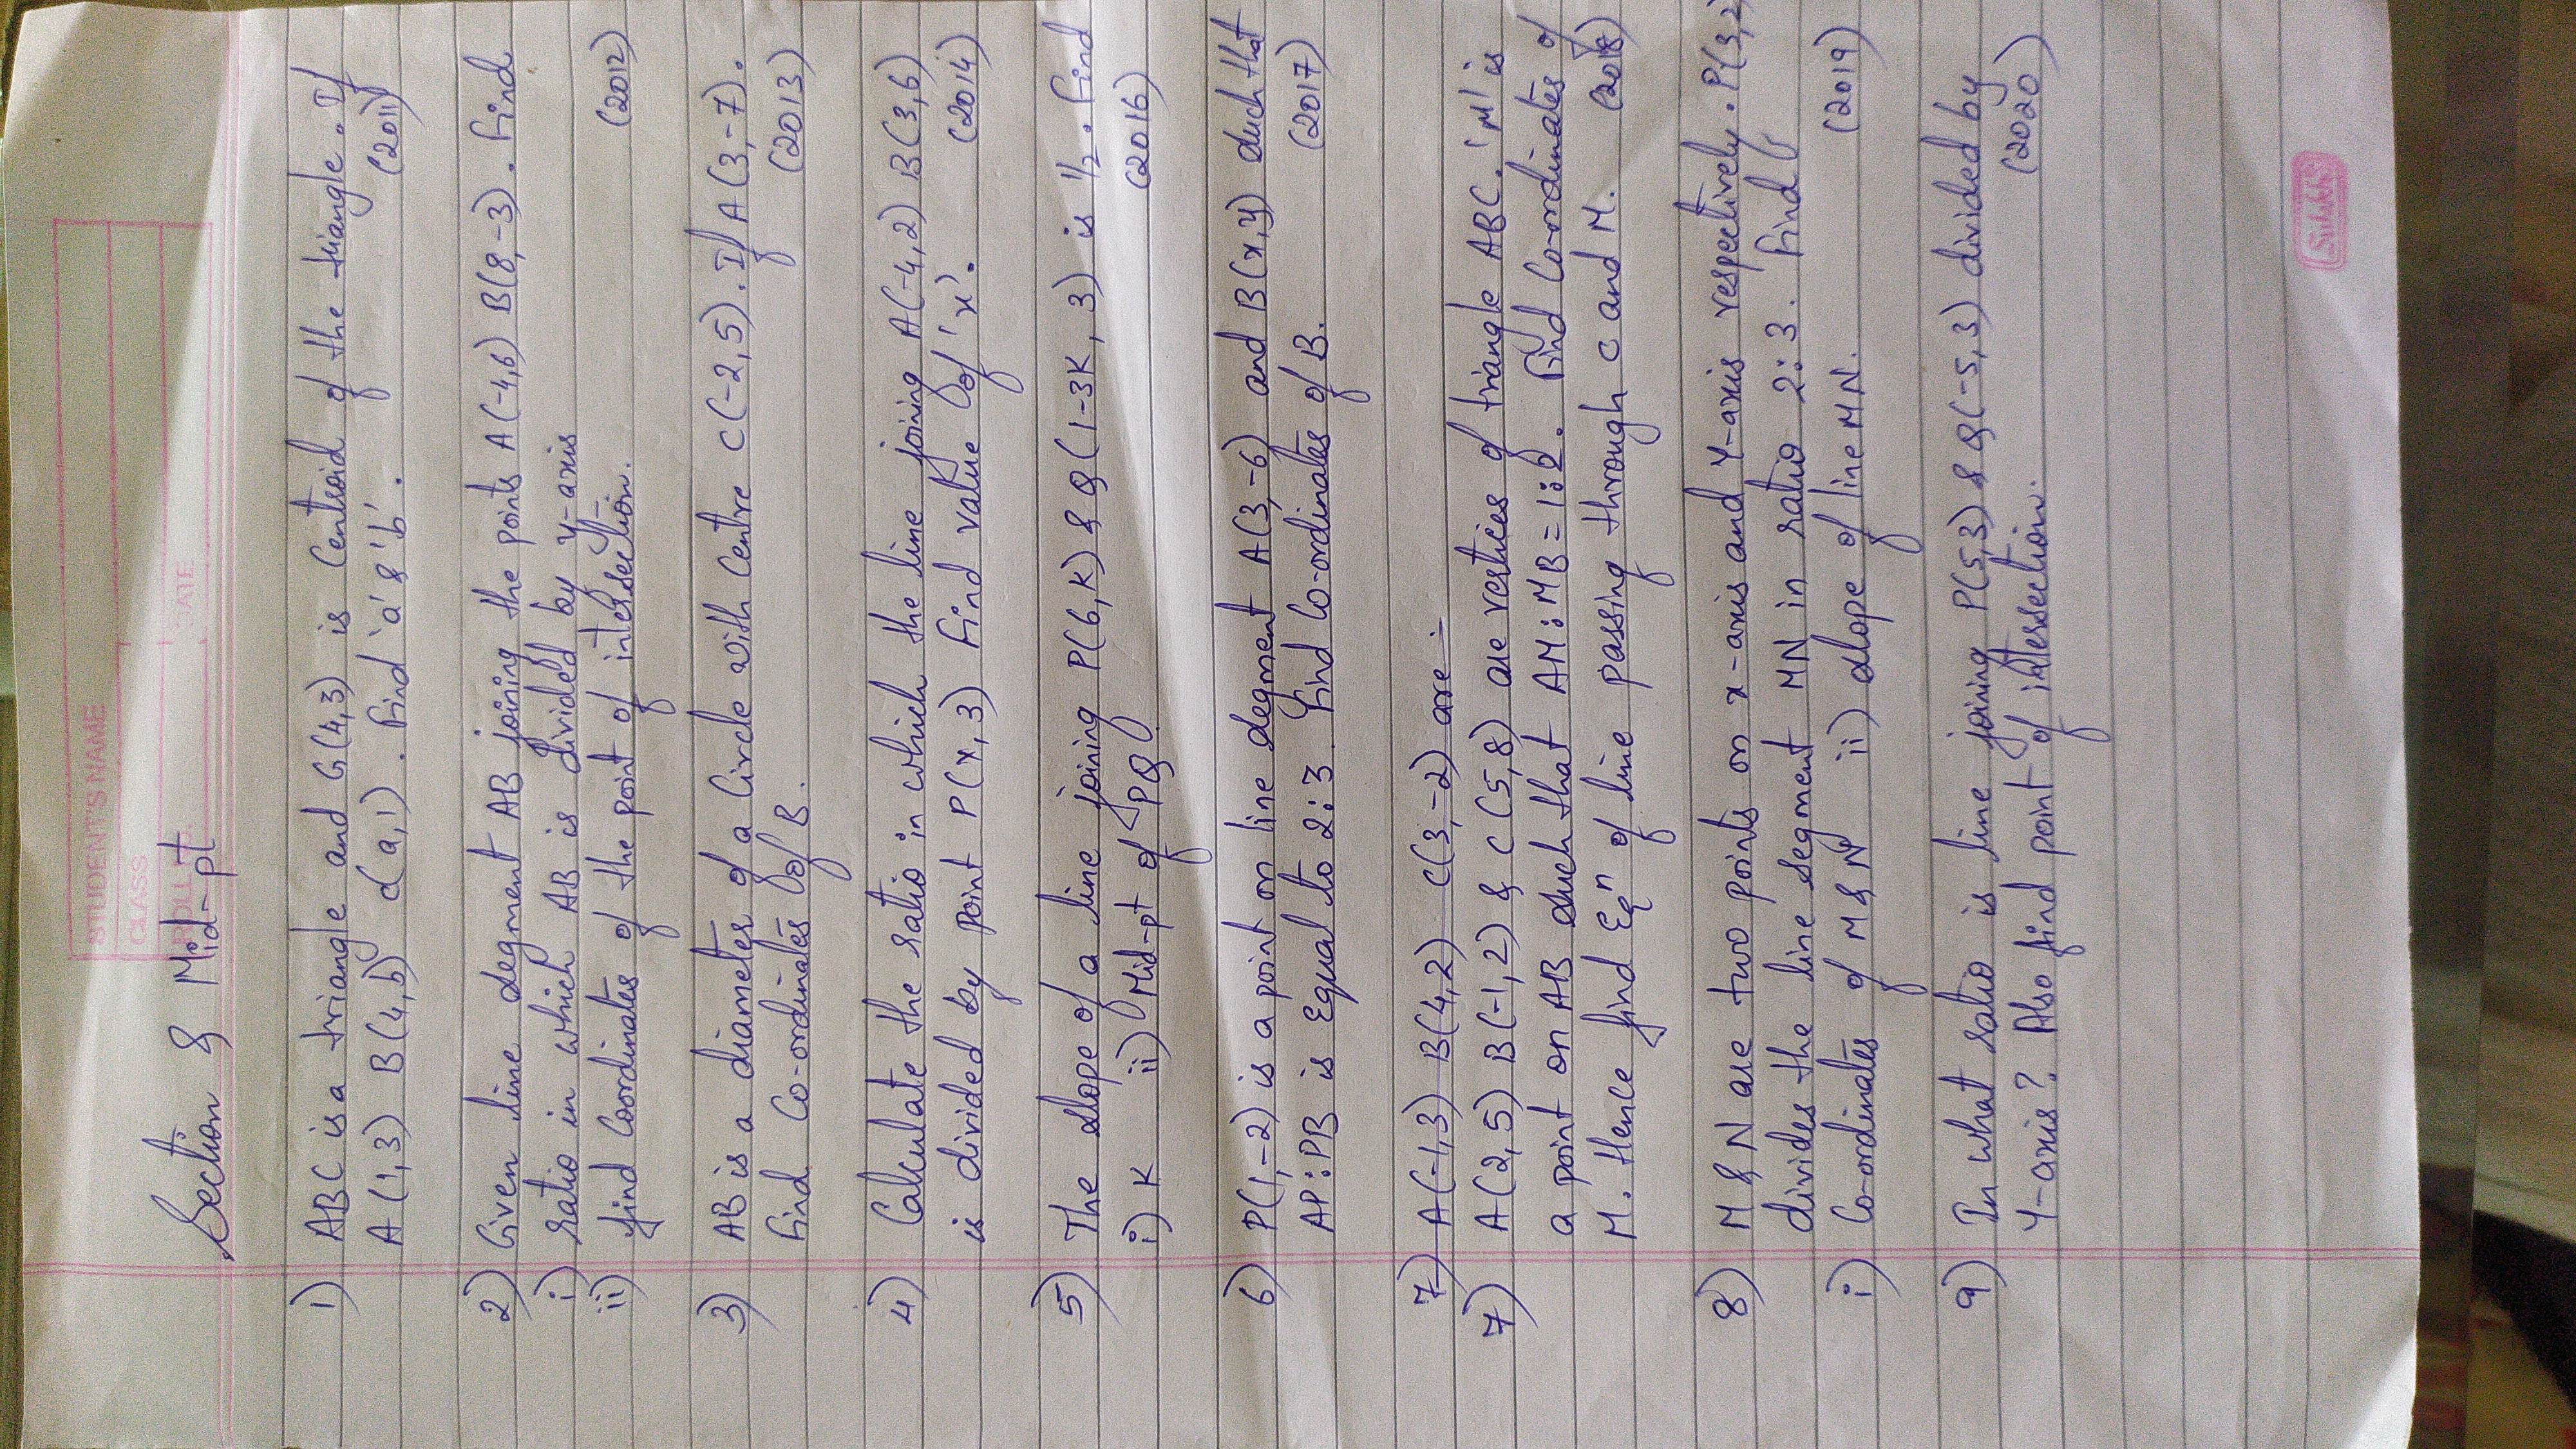 STUDENT'S NAME
CLASS
ROLL NO. DATE
Section & Mid-pt
1) ABC is a triangle and G(4,3) is Centroid of the triangle. If
A(1,3) B(4,b) C(a,1). Find 'a' & 'b'. (2011)
2) Given line segment AB joining the points A(-4,6) B(8,-3). Find
i) ratio in which AB is divided by y-axis
ii) find Coordinates of the point of intersection. (2012)
3) AB is a diameter of a Circle with Centre C(-2,5). If A(3,-7).
Find Co-ordinates of B. (2013)
4) Calculate the ratio in which the line joining A(-4,2) B(3,6)
is divided by point P(x,3) Find value of 'x'. (2014)
5) The slope of a line joining P(6,K) & Q(1-3K,3) is 1/2. Find
i) K ii) Mid-pt of PQ (2016)
6) P(1,-2) is a point on line segment A(3,-6) and B(x,y) such that
AP:PB is Equal to 2:3. Find Co-ordinates of B. (2017)
7) A(-1,3) B(4,2) C(3,-2) are
7) A(2,5) B(-1,2) & C(5,8) are vertices of triangle ABC. 'M' is
a point on AB such that AM:MB=1:2. Find Co-ordinates of
M. Hence find Eqn of line passing through C and M. (2018)
8) M & N are two points on x-axis and Y-axis respectively. P(3,2)
divides the line segment MN in ratio 2:3. Find
i) Co-ordinates of M & N ii) slope of line MN. (2019)
9) In what ratio is line joining P(5,3) & Q(-5,3) divided by
Y-axis? Also find point of intersection. (2020)